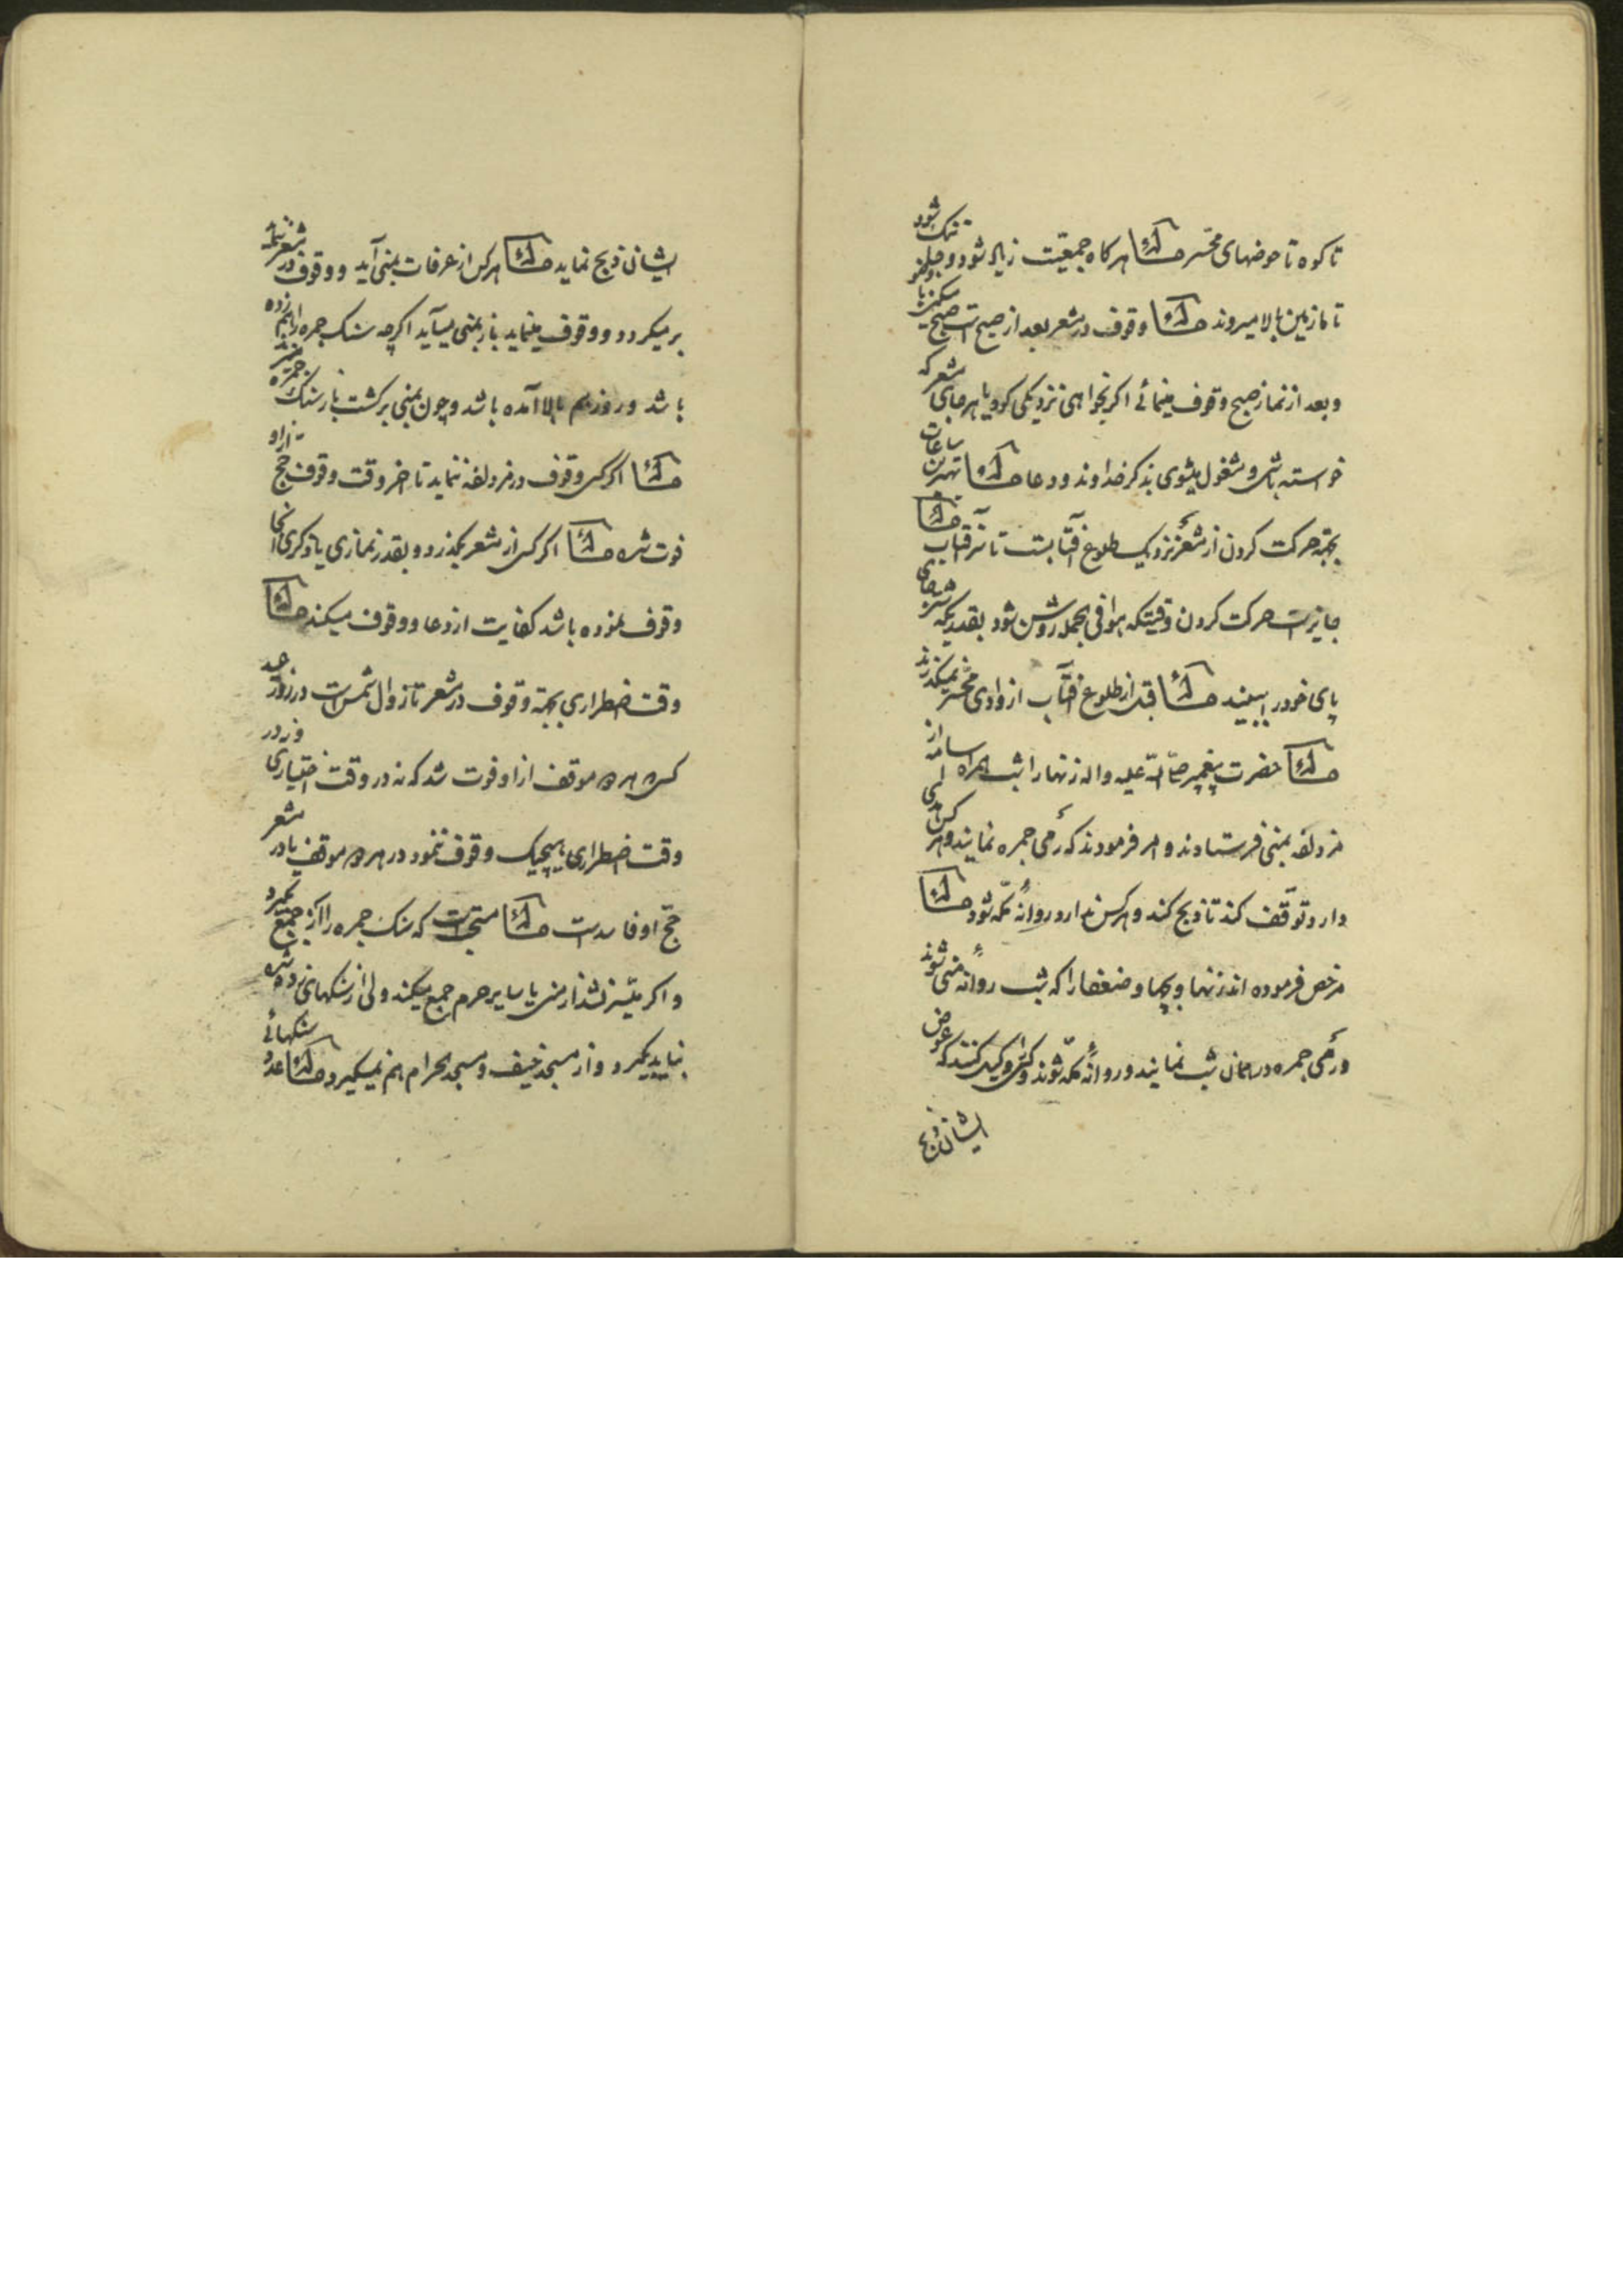 تا کوه تا حوضهای محسّر مسئله هر کاه جمعیّت زیاد شود و جا تنک شود
تا مازمین بالا میروند مسئله وقوف در مشعر بعد از صبح است صبح
و بعد از نماز صبح وقوف مینمائی اکر بخواهی نزدیکی کوه یا هر جای مشعر که
خواسته باشی و مشغول میشوی بذکر خداوند و دعا مسئله بهترین ساعات
بجهة حرکت کردن از مشعر نزدیک طلوع آفتابست تا آفتاب مسئله
جایز است حرکت کردن وقتیکه هوا فی الجمله روشن شود بقدریکه شتر جای
پای خود را ببیند مسئله قبل از طلوع آفتاب از وادی محسّر نمیکذرند
مسئله حضرت پیغمبر صلّی اللّه علیه واله زنها را شب همراه اسامه از
مزدلفه بمنی فرستادند و امر فرمودند که رمی جمره نمایند و هر کس هدی
دارد توقّف کند تا ذبح کند و هر کس ندارد روانه مکّه شود مسئله
مرخص فرموده اند زنها و بچها و ضعفا را که شب روانه منی شوند
و رمی جمره در همان شب نمایند و روانه مکّه شوند و کسی را وکیل کنند که عوض
ایشان ذبح
ایشان ذبح نماید مسئله هر کس از عرفات بمنی آید و وقوف در مشعر نکند
بر میکردد و وقوف مینماید باز بمنی میآید اکرچه سنک جمره را هم زده
باشد و روز هم بالا آمده باشد و چون بمنی برکشت باز سنک جمره میزند
مسئله اکر کسی وقوف در مزدلفه ننماید تا اخر وقت وقوف حج از او
فوت شده مسئله اکر کسی از مشعر بکذرد و بقدر نمازی یا ذکری انجا
وقوف نموده باشد کفایت از دعا و وقوف میکند مسئله
وقت اضطراری بجهة وقوف در مشعر تا زوال شمس است در روز عید
کسی هر دو موقف از او فوت شد که نه در وقت اختیاری و نه در
وقت اضطراری بهیچیک وقوف ننمود در هر دو موقف یا در مشعر
حج او فاسد است مسئله مستحب است که سنک جمره را از جمع بکیرد
و اکر میّسر نشد از منی یا سایر حرم جمع میکند ولی از سنکهای زده شده
نباید بکیرد و از مسجد خیف و مسجد الحرام هم نمیکیرد مسئله عدد سنکهائی